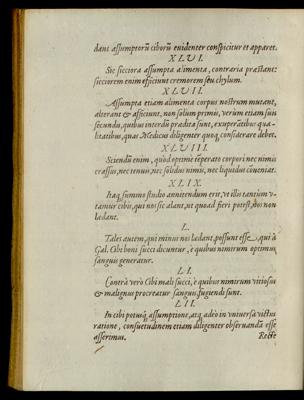 dant assumptorũ ciborũ euidenter conspicitur et apparet.
XLVI.
Sic sicciora assumpta alimenta, contraria præstant:
sicciorem enim efficiunt cremorem seu chylum.
XLVII.
Assumpta etiam alimenta corpus nostrum mutant,
alterant & afficiunt, non solùm primis, verùm etiam suis
secundis, quibus interdũ prædita sunt, exuperātibus qua-
litatibus, quas Medicus diligenter quoq; considerare debet.
XLVIII.
Sciendũ enim, quòd optimè tẽperato corpori nec nimis
crassus, nec tenuis, nec solidus nimis, nec liquidus cõueniat.
XLIX.
Itaq; summo studio annitendum erit, vt illis tantium v-
tamur cibis, qui nos sic alant, ut quoad fieri potest, nos non
lædant.
L.
Tales autem, qui minus nos lædant, possunt esse, qui à
Gal. Cibi boni succi dicuntur, e quibus nimirum optimus
sanguis generatur.
LI.
Contrà verò Cibi mali succi, e quibus nimirum vitiosus
& malignus procreatur sanguis, fugiendi sunt.
LII.
In cibi potusq; assumptione, atq; adeò in vniuersa victus
ratione, consuetudinem etiam diligenter obseruandã esse
asserimus. Rectè